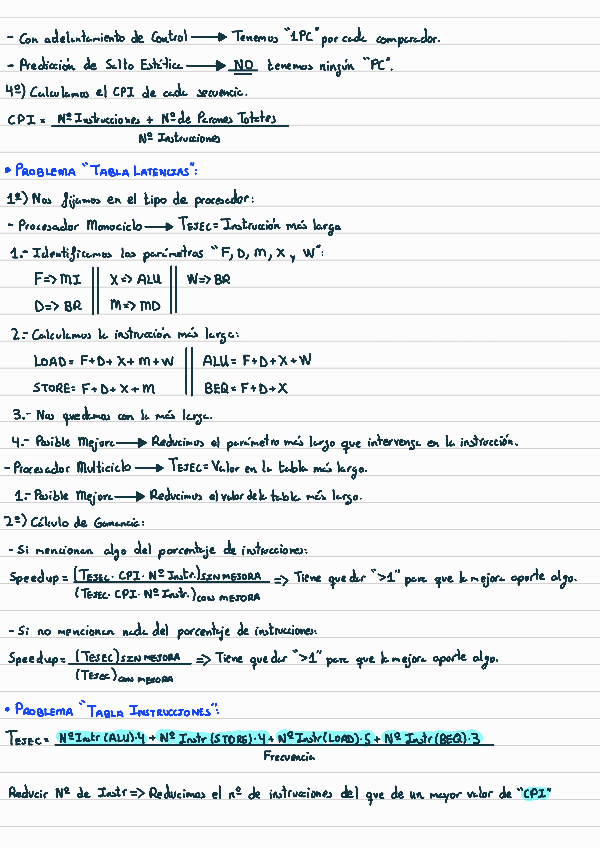 - Con adelantamiento de Control → Tenemos "1PC" por cada comparador.
- Predicción de Salto Estática → NO tenemos ningún "PC".
4º) Calculamos el CPI de cada secuencia.
CPI = Nº Instrucciones + Nº de Parones Totales
Nº Instrucciones
• PROBLEMA "TABLA LATENCIAS":
1º) Nos fijamos en el tipo de procesador:
- Procesador Monociclo → TEJEC = Instrucción más larga
1.- Identificamos los parámetros "F, D, M, X y W":
F => MI || X => ALU || W => BR
D => BR || M => MD ||
2.- Calculamos la instrucción más larga:
LOAD = F+D+X+M+W || ALU = F+D+X+W
STORE = F+D+X+M || BEQ = F+D+X
3.- Nos quedamos con la más larga.
4.- Posible Mejora → Reducimos el parámetro más largo que intervenga en la instrucción.
- Procesador Multiciclo → TEJEC = Valor en la tabla más largo.
1.- Posible Mejora → Reducimos el valor de la tabla más largo.
2º) Cálculo de Ganancia:
- Si mencionan algo del porcentaje de instrucciones:
Speedup = (TEJEC · CPI · Nº Instr.) SIN MEJORA => Tiene que dar ">1" para que la mejora aporte algo.
(TEJEC · CPI · Nº Instr.) CON MEJORA
- Si no mencionan nada del porcentaje de instrucciones:
Speedup = (TEJEC) SIN MEJORA => Tiene que dar ">1" para que la mejora aporte algo.
(TEJEC) CON MEJORA
• PROBLEMA "TABLA INSTRUCCIONES":
TEJEC = Nº Instr (ALU)·4 + Nº Instr (STORE)·4 + Nº Instr (LOAD)·5 + Nº Instr (BEQ)·3
Frecuencia
Reducir Nº de Instr => Reducimos el nº de instrucciones del que de un mayor valor de "CPI"